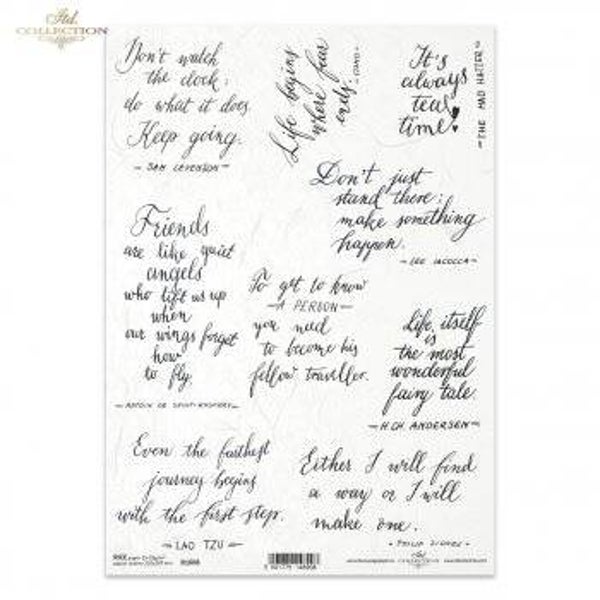 Itd.
COLLECTION
Don't watch
the clock;
do what it does
Keep going.
- SAM LEVENSON -
Life begins
where fear
ends.
It's
always
tea
time!
- THE MAD HATTER -
Don't just
stand there;
make something
happen.
- LEE IACOCCA -
Friends
are like quiet
angels
who lift us up
when
our wings forget
how
to fly.
To get to know
- A PERSON -
you need
to become his
fellow traveller.
Life itself
is
the most
wonderful
fairy tale.
- H.CH. ANDERSEN -
Even the farthest
journey begins
with the first step.
- LAO TZU -
Either I will find
a way or I will
make one.